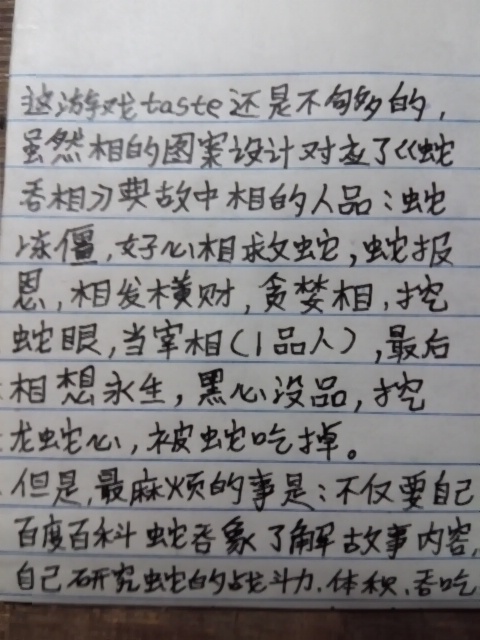 这游戏taste还是不够多的，
虽然相的图案设计对应了《蛇
吞相》典故中相的人品：蛇
冻僵，好心相救蛇，蛇报
恩，相发横财，贪婪相，挖
蛇眼，当宰相（1品人），最后
相想永生，黑心没品，挖
龙蛇心，被蛇吃掉。
但是，最麻烦的事是：不仅要自己
百度百科蛇吞象了解故事内容，
自己研究蛇的战斗力、体积、吞吃